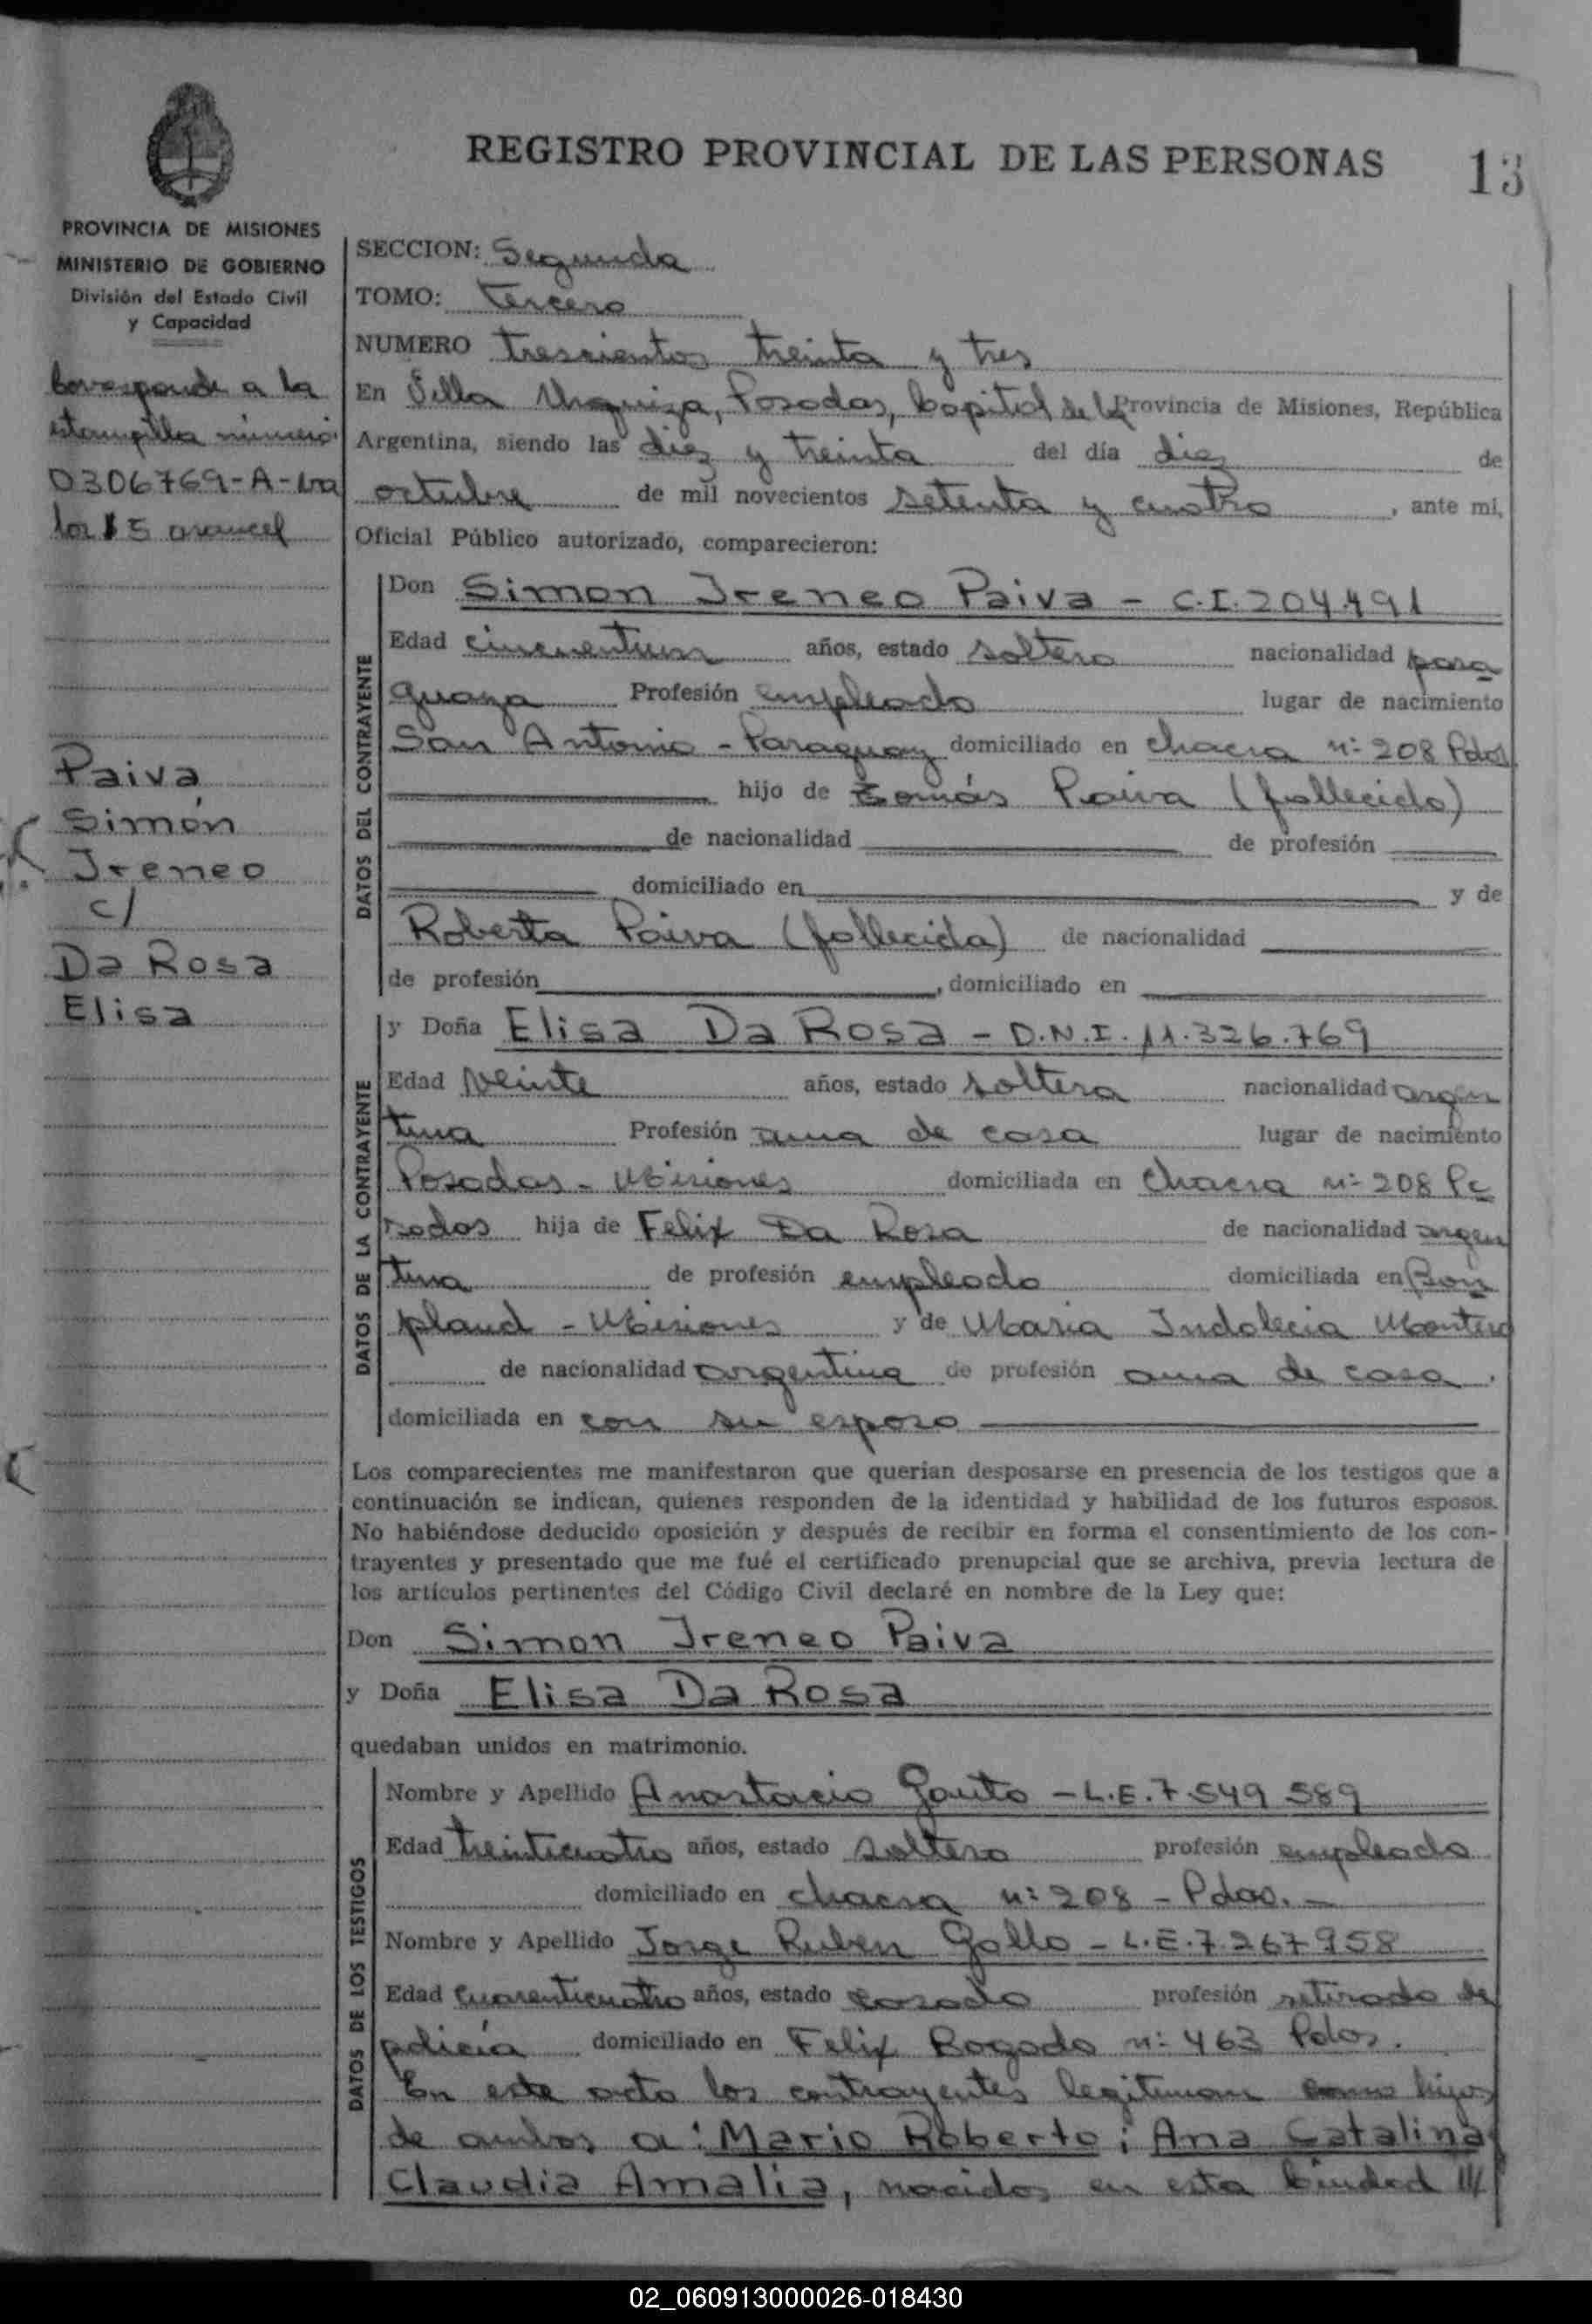 REGISTRO PROVINCIAL DE LAS PERSONAS 13
PROVINCIA DE MISIONES
MINISTERIO DE GOBIERNO
División del Estado Civil
y Capacidad
Corresponde a la
estampilla número
0306769-A-
$5 arancel
Paiva
Simón
Ireneo
c/
Da Rosa
Elisa
SECCION: Segunda
TOMO: tercero
NUMERO trescientos treinta y tres
En Villa Urquiza, Posadas, Capital de la Provincia de Misiones, República
Argentina, siendo las diez y treinta del día diez de
octubre de mil novecientos setenta y cuatro, ante mi,
Oficial Público autorizado, comparecieron:
DATOS DEL CONTRAYENTE
Don Simon Ireneo Paiva - C.I. 204.491
Edad años, estado soltero nacionalidad para
guaya Profesión empleado lugar de nacimiento
San Antonio - Paraguay domiciliado en chacra nº 208 Pdas
hijo de Tomás Paiva (fallecido)
de nacionalidad de profesión
domiciliado en y de
Roberta Paiva (fallecida) de nacionalidad
de profesión , domiciliado en
DATOS DE LA CONTRAYENTE
y Doña Elisa Da Rosa - D.N.I. 11.326.769
Edad veinte años, estado soltera nacionalidad argen
tina Profesión ama de casa lugar de nacimiento
Posadas - Misiones domiciliada en chacra nº 208 Po
sadas hija de Felix Da Rosa de nacionalidad argen
tina de profesión empleado domiciliada en Bon
pland - Misiones y de Maria Indalecia Montero
de nacionalidad argentina de profesión ama de casa.
domiciliada en con su esposo
Los comparecientes me manifestaron que querían desposarse en presencia de los testigos que a
continuación se indican, quienes responden de la identidad y habilidad de los futuros esposos.
No habiéndose deducido oposición y después de recibir en forma el consentimiento de los con-
trayentes y presentado que me fué el certificado prenupcial que se archiva, previa lectura de
los artículos pertinentes del Código Civil declaré en nombre de la Ley que:
Don Simon Ireneo Paiva
y Doña Elisa Da Rosa
quedaban unidos en matrimonio.
DATOS DE LOS TESTIGOS
Nombre y Apellido Anastacio Gauto - L.E. 7.549.589
Edad treinticuatro años, estado soltero profesión empleado
domiciliado en chacra nº 208 - Pdas. -
Nombre y Apellido Jorge Ruben Gallo - L.E. 7.267.958
Edad cuarenticuatro años, estado casado profesión retirado de
policía domiciliado en Felix Bogado nº 463 Pdas.
En este acto los contrayentes legitiman como hijos
de ambos a: Mario Roberto; Ana Catalina
Claudia Amalia, nacidos en esta Ciudad ///
02_060913000026-018430